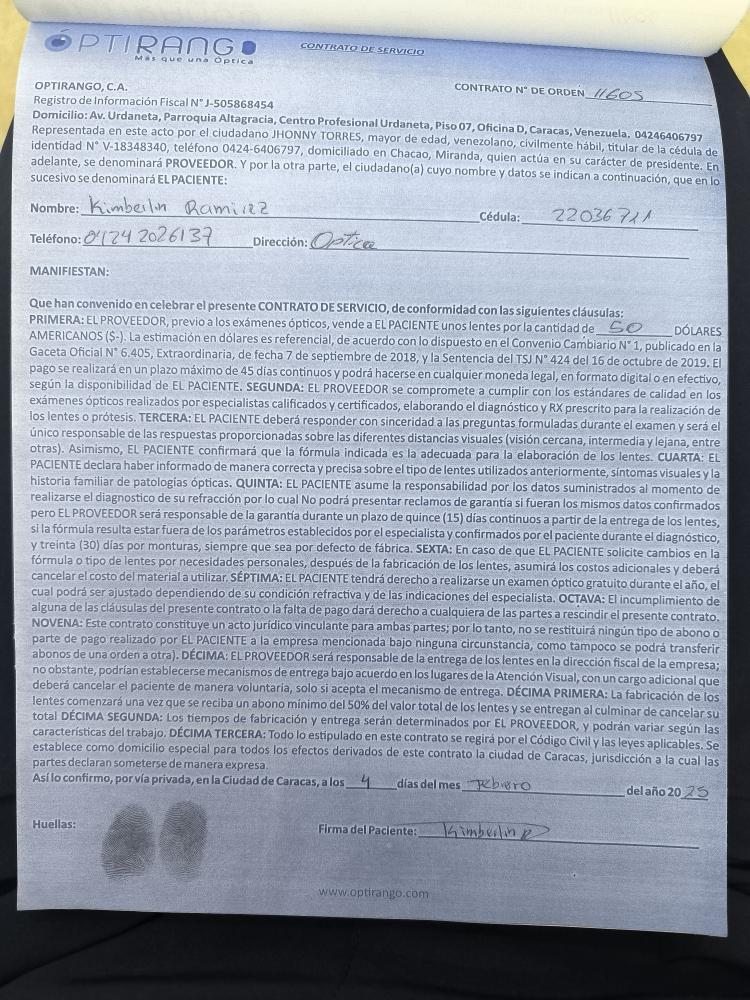 OPTIRANGO
Más que una Óptica
CONTRATO DE SERVICIO
OPTIRANGO, C.A.
CONTRATO N° DE ORDEN 11605
Registro de Información Fiscal N° J-505868454
Domicilio: Av. Urdaneta, Parroquia Altagracia, Centro Profesional Urdaneta, Piso 07, Oficina D, Caracas, Venezuela. 04246406797
Representada en este acto por el ciudadano JHONNY TORRES, mayor de edad, venezolano, civilmente hábil, titular de la cédula de
identidad N° V-18348340, teléfono 0424-6406797, domiciliado en Chacao, Miranda, quien actúa en su carácter de presidente. En
adelante, se denominará PROVEEDOR. Y por la otra parte, el ciudadano(a) cuyo nombre y datos se indican a continuación, que en lo
sucesivo se denominará EL PACIENTE:
Nombre: Kimberlin Ramirez Cédula: 22036721
Teléfono: 04242026137 Dirección: Optica
MANIFIESTAN:
Que han convenido en celebrar el presente CONTRATO DE SERVICIO, de conformidad con las siguientes cláusulas:
PRIMERA: EL PROVEEDOR, previo a los exámenes ópticos, vende a EL PACIENTE unos lentes por la cantidad de 50 DÓLARES
AMERICANOS ($-). La estimación en dólares es referencial, de acuerdo con lo dispuesto en el Convenio Cambiario N° 1, publicado en la
Gaceta Oficial N° 6.405, Extraordinaria, de fecha 7 de septiembre de 2018, y la Sentencia del TSJ N° 424 del 16 de octubre de 2019. El
pago se realizará en un plazo máximo de 45 días continuos y podrá hacerse en cualquier moneda legal, en formato digital o en efectivo,
según la disponibilidad de EL PACIENTE. SEGUNDA: EL PROVEEDOR se compromete a cumplir con los estándares de calidad en los
exámenes ópticos realizados por especialistas calificados y certificados, elaborando el diagnóstico y RX prescrito para la realización de
los lentes o prótesis. TERCERA: EL PACIENTE deberá responder con sinceridad a las preguntas formuladas durante el examen y será el
único responsable de las respuestas proporcionadas sobre las diferentes distancias visuales (visión cercana, intermedia y lejana, entre
otras). Asimismo, EL PACIENTE confirmará que la fórmula indicada es la adecuada para la elaboración de los lentes. CUARTA: EL
PACIENTE declara haber informado de manera correcta y precisa sobre el tipo de lentes utilizados anteriormente, síntomas visuales y la
historia familiar de patologías ópticas. QUINTA: EL PACIENTE asume la responsabilidad por los datos suministrados al momento de
realizarse el diagnostico de su refracción por lo cual No podrá presentar reclamos de garantía si fueran los mismos datos confirmados
pero EL PROVEEDOR será responsable de la garantía durante un plazo de quince (15) días continuos a partir de la entrega de los lentes,
si la fórmula resulta estar fuera de los parámetros establecidos por el especialista y confirmados por el paciente durante el diagnóstico,
y treinta (30) días por monturas, siempre que sea por defecto de fábrica. SEXTA: En caso de que EL PACIENTE solicite cambios en la
fórmula o tipo de lentes por necesidades personales, después de la fabricación de los lentes, asumirá los costos adicionales y deberá
cancelar el costo del material a utilizar. SÉPTIMA: EL PACIENTE tendrá derecho a realizarse un examen óptico gratuito durante el año, el
cual podrá ser ajustado dependiendo de su condición refractiva y de las indicaciones del especialista. OCTAVA: El incumplimiento de
alguna de las cláusulas del presente contrato o la falta de pago dará derecho a cualquiera de las partes a rescindir el presente contrato.
NOVENA: Este contrato constituye un acto jurídico vinculante para ambas partes; por lo tanto, no se restituirá ningún tipo de abono o
parte de pago realizado por EL PACIENTE a la empresa mencionada bajo ninguna circunstancia, como tampoco se podrá transferir
abonos de una orden a otra). DÉCIMA: EL PROVEEDOR será responsable de la entrega de los lentes en la dirección fiscal de la empresa;
no obstante, podrían establecerse mecanismos de entrega bajo acuerdo en los lugares de la Atención Visual, con un cargo adicional que
deberá cancelar el paciente de manera voluntaria, solo si acepta el mecanismo de entrega. DÉCIMA PRIMERA: La fabricación de los
lentes comenzará una vez que se reciba un abono mínimo del 50% del valor total de los lentes y se entregan al culminar de cancelar su
total DÉCIMA SEGUNDA: Los tiempos de fabricación y entrega serán determinados por EL PROVEEDOR, y podrán variar según las
características del trabajo. DÉCIMA TERCERA: Todo lo estipulado en este contrato se regirá por el Código Civil y las leyes aplicables. Se
establece como domicilio especial para todos los efectos derivados de este contrato la ciudad de Caracas, jurisdicción a la cual las
partes declaran someterse de manera expresa.
Así lo confirmo, por vía privada, en la Ciudad de Caracas, a los 4 días del mes Febrero del año 2025
Huellas:
Firma del Paciente: Kimberlin R
www.optirango.com